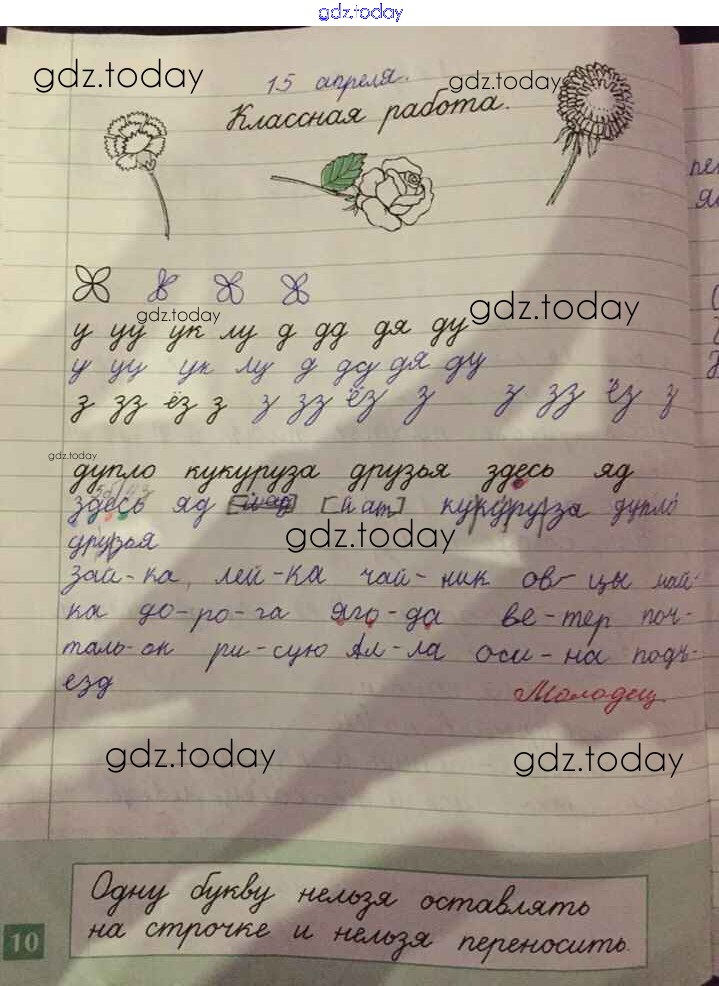 gdz.today
gdz.today
15 апреля.
gdz.today
Классная работа.
gdz.today
gdz.today
у уу ук лу д дд дя ду
у уу ук лу д дд дя ду
з зз ёз з з зз ёз з з зз ёз з
gdz.today
дупло кукуруза друзья здесь яд
здесь яд [йат] кукуруза дупло
gdz.today
друзья
зай-ка, лей-ка чай-ник ов-цы май-
ка до-ро-га яго-да ве-тер поч-
таль-он ри-сую Ал-ла оси-на подъ-
езд
Молодец
gdz.today
gdz.today
Одну букву нельзя оставлять
на строчке и нельзя переносить.
10